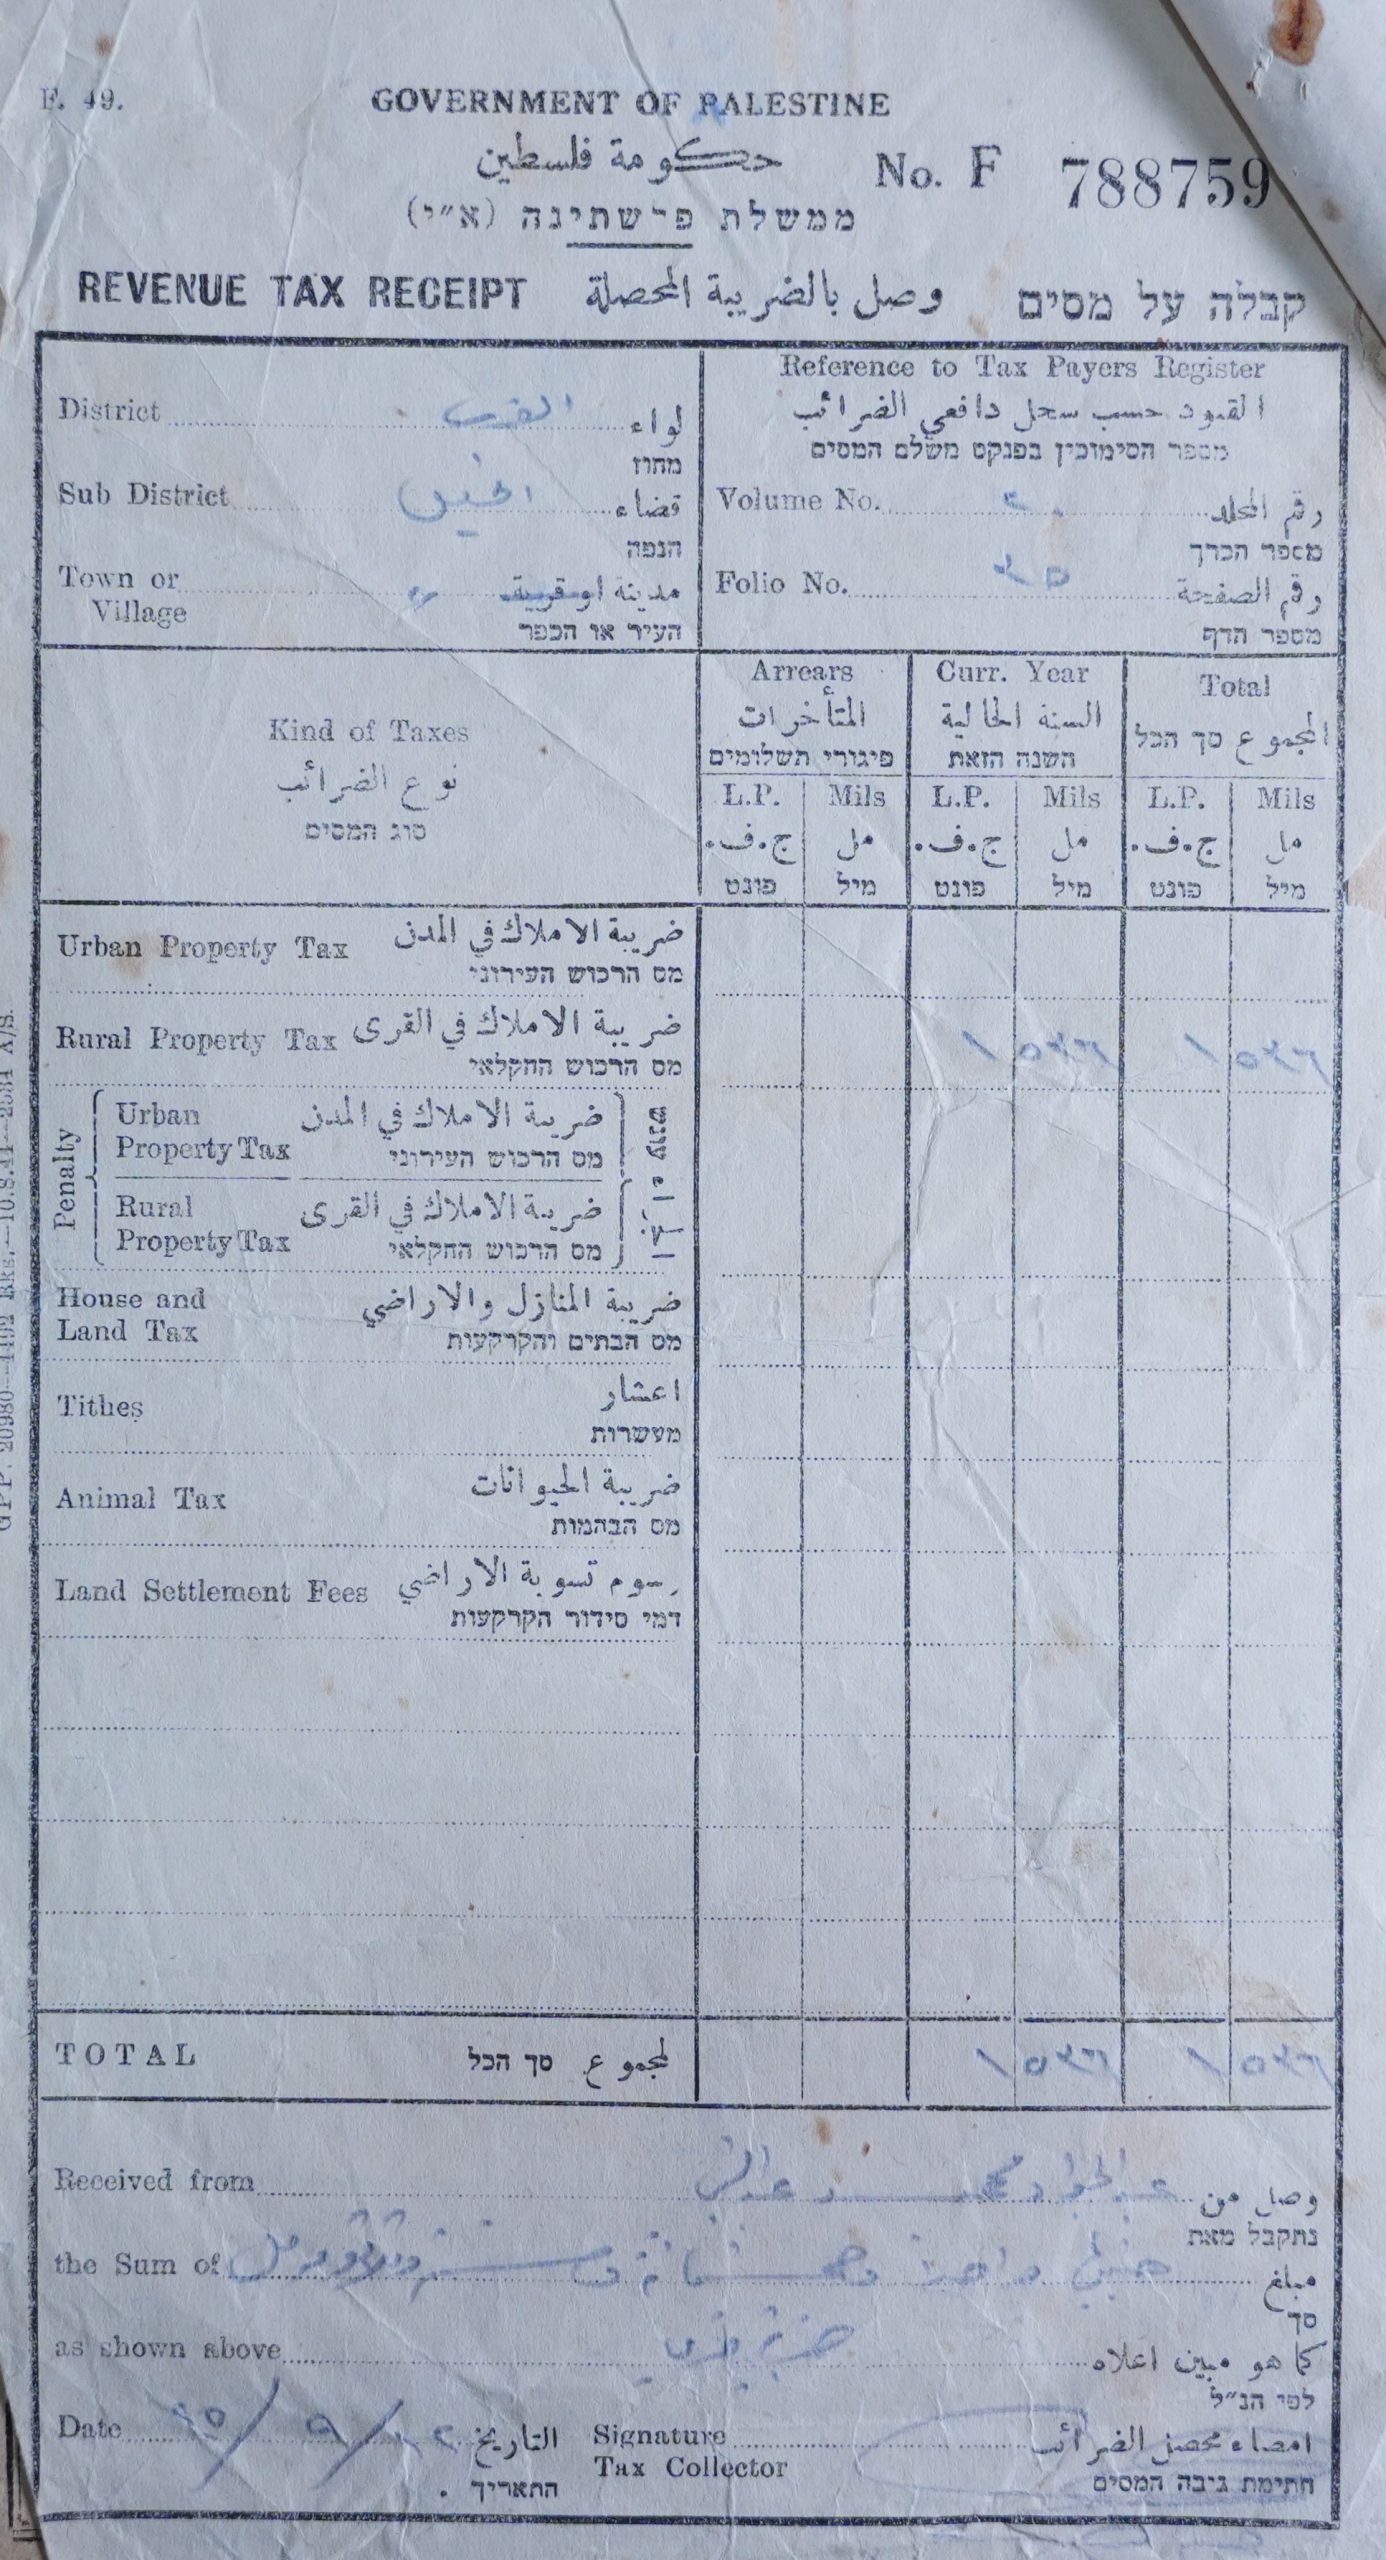 F. 49.
GOVERNMENT OF PALESTINE
حكومة فلسطين
No. F 788759
ממשלת פלשתינה (א״י)
REVENUE TAX RECEIPT وصل بالضريبة المحصلة קבלה על מסים
Reference to Tax Payers Register
القيود حسب سجل دافعي الضرائب
מספר הסימוכין בפנקס משלם המסים
District القدس لواء
מחוז
Sub District الخليل قضاء
הנפה
Town or Village مدينة او قرية
העיר או הכפר
Volume No. رقم المجلد
מספר הכרך
Folio No. رقم الصفحة
מספר הדף
Kind of Taxes
نوع الضرائب
סוג המסים
Arrears Curr. Year Total
المتأخرات السنة الحالية المجموع סך הכל
פיגורי תשלומים השנה הזאת
L.P. Mils L.P. Mils L.P. Mils
ج.ف. مل ج.ف. مل ج.ف. مل
פונט מיל פונט מיל פונט מיל
Urban Property Tax ضريبة الاملاك في المدن
מס הרכוש העירוני
Rural Property Tax ضريبة الاملاك في القرى ١ ٥٣٦ ١ ٥٣٦
מס הרכוש החקלאי
Penalty
Urban Property Tax ضريبة الاملاك في المدن
מס הרכוש העירוני
עונש
Rural Property Tax ضريبة الاملاك في القرى
מס הרכוש החקלאי
House and Land Tax ضريبة المنازل والاراضي
מס הבתים והקרקעות
Tithes اعشار
מעשרות
Animal Tax ضريبة الحيوانات
מס הבהמות
Land Settlement Fees رسوم تسوية الاراضي
דמי סידור הקרקעות
TOTAL المجموع סך הכל ١ ٥٣٦ ١ ٥٣٦
Received from محمد وصل من
נתקבל מאת
the Sum of مبلغ
סך
as shown above كما هو مبين اعلاه
לפי הנ״ל
Date التاريخ
התאריך
Signature Tax Collector امضاء محصل الضرائب
חתימת גובה המסים